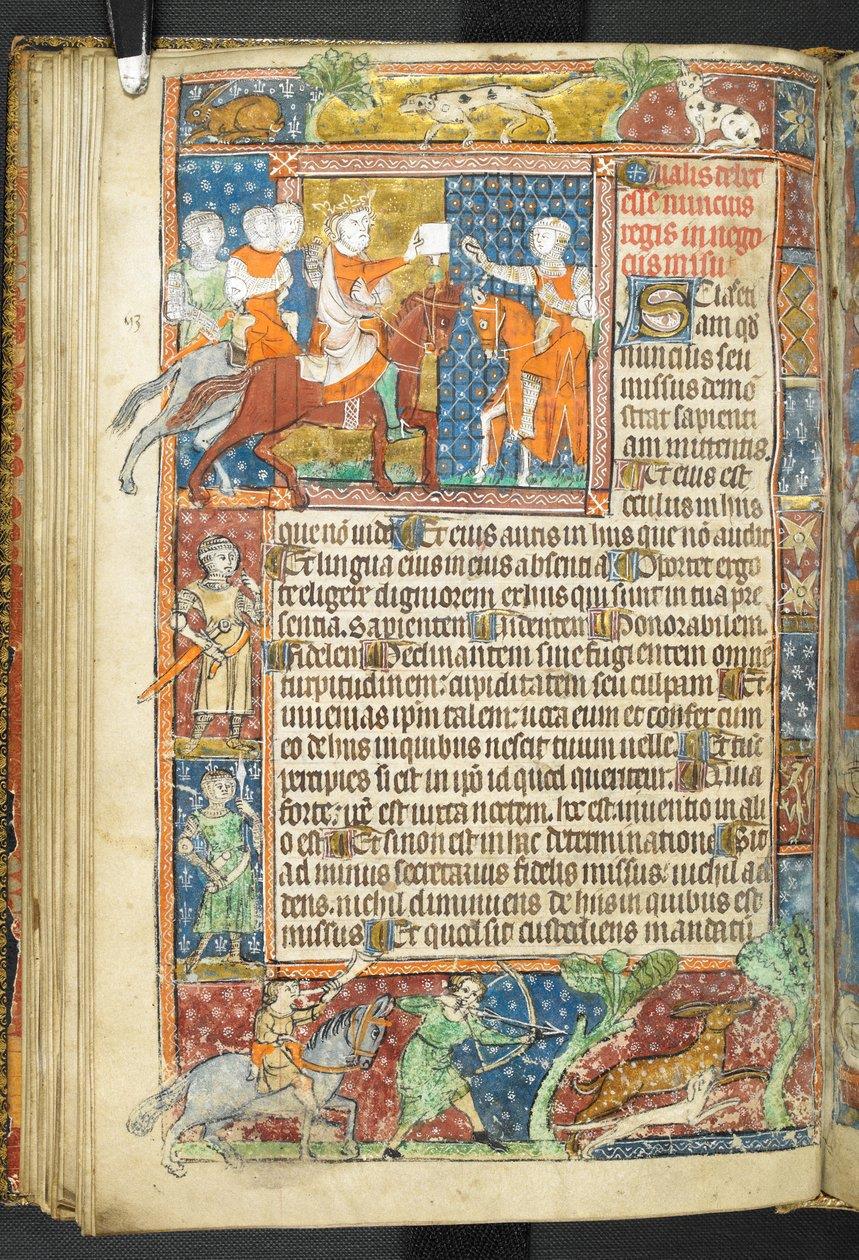 Qualis debet
esse nuncius
regis in nego
ciis missu
Scias eti
am qd
nuncius seu
missus demō
strat sapienti
am mittentis.
Et eius est
oculus in hiis
que nō uidet Et eius auris in hiis que nō audit
Et lingua eius in eius absentia Oportet ergo
te eligere digniorem ex hiis qui sunt in tua pre
sentia. Sapientem Uidentem Honorabilem.
Fidelem Declinantem siue fugientem omnē
turpitudinem: cupiditatem seu culpam Et
inuenias ipm talem: iura eum et confer cum
eo de hiis in quibus nescit tuum uelle Et tūc
percipies si est in ipō id quod queritur. Quia
forte: est iuxta noctem. hoc est: inuentio in ali
o est Et si non est in hac determinatione Sit
ad minus secretarius fidelis missus: nichil ad
dens. nichil diminuens de hiis in quibus est
missus Et quod sit custodiens mandatū